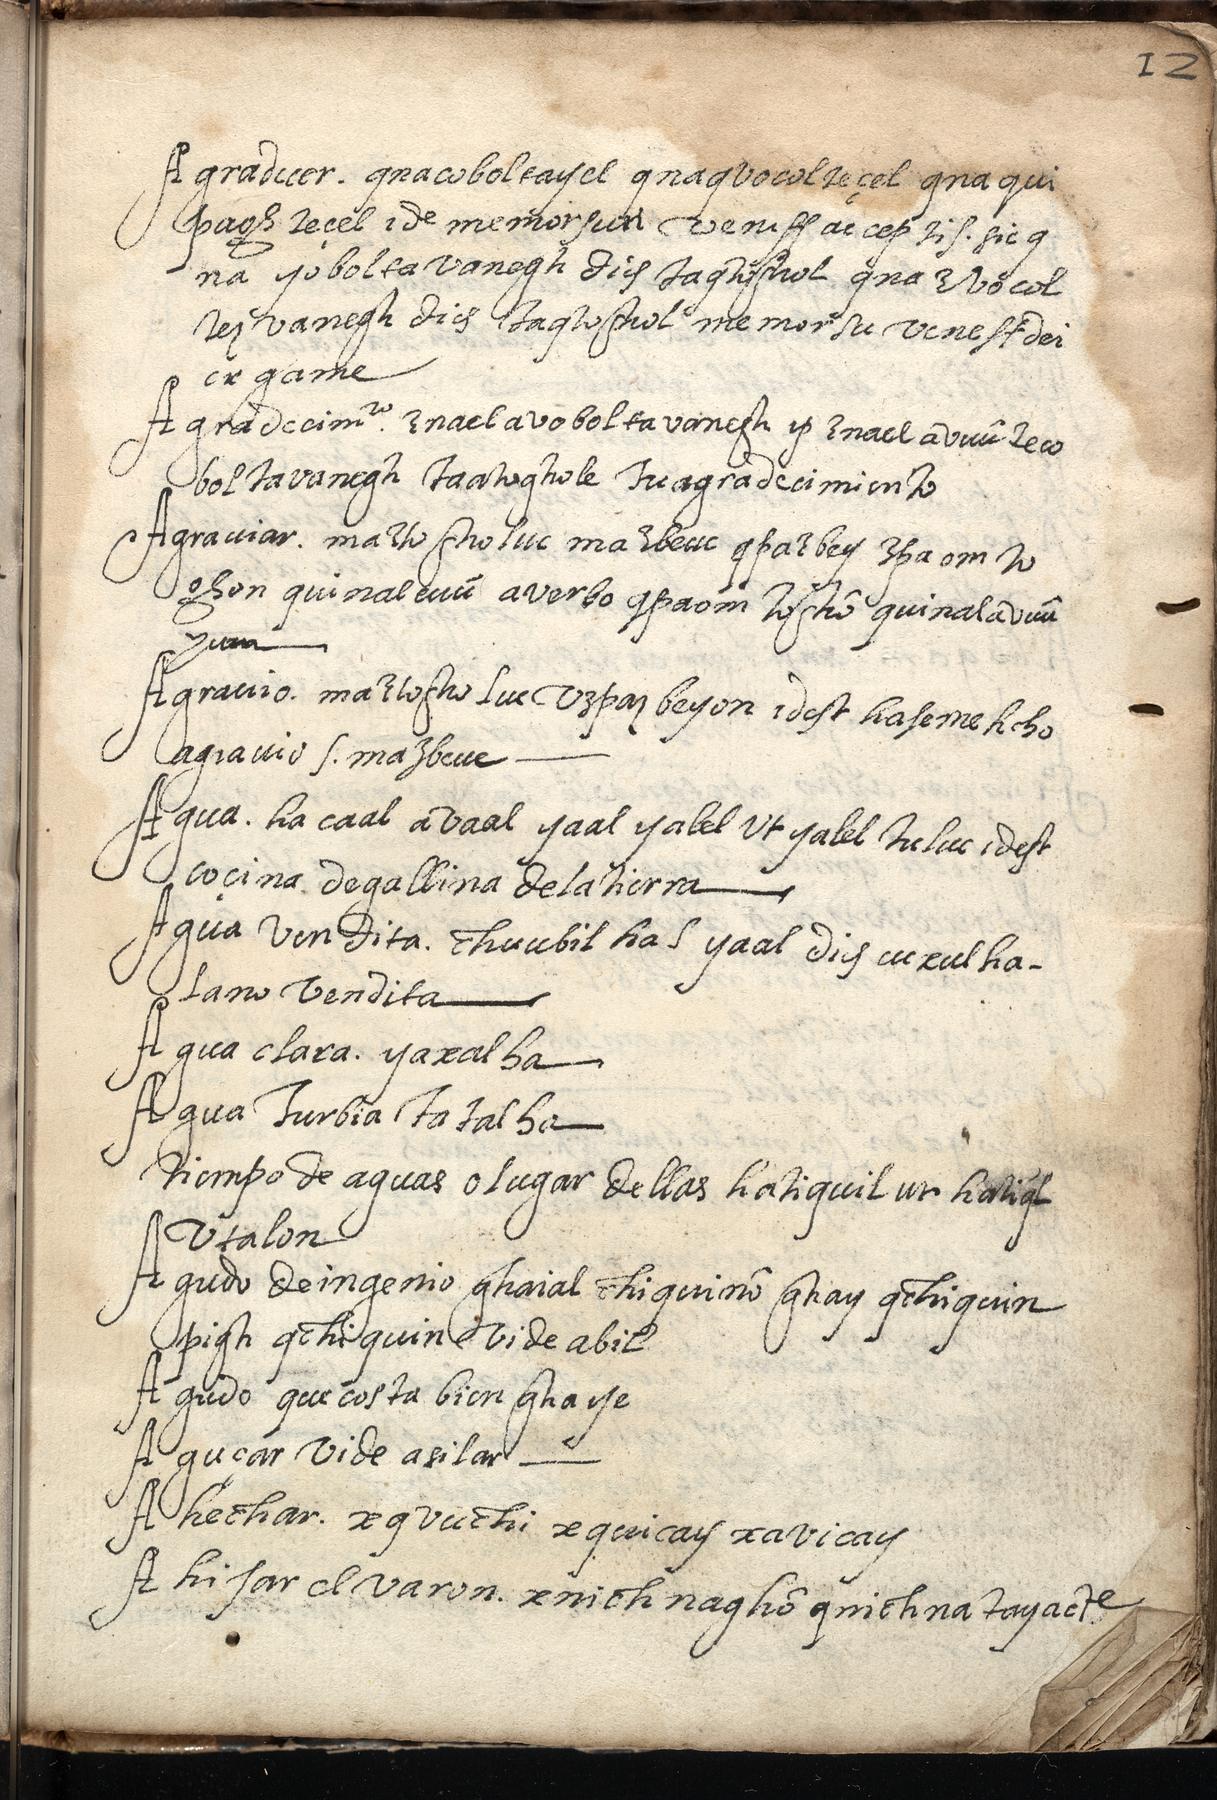 12
Agradecer. qnacoboltayel qnaqvocolteçel qna qui
paogh teçel ide memorsun venisse accep tis. sic q
na yoboltavanegh dics taqtoghol qna ɛvocol
tez vanegh dics taqtoghol memorsu venesse dei
er game
Agradecimto. ɛnaelavoboltavanegh ip ɛnael avuū teco
boltavanegh taatoghole tuagradecimiento
Agraviar. maɛto ghotuc maɛbeuc qpaɛbey ɛpaom to
ghon quinalevuū averbo qpaom toghō quinalavuū
yuun
Agravio. maɛtogho luc vɛpaz beyon idest haseme hcho
agravio s. maɛbeue
Agua. ha caal avaal yaal yabel vt yabel tuluc idest
coçina de gallina dela tierra
Agua vendita. chuubil ha s yaal dics cuxul ha-
lano vendita
Agua clara. yaxal ha
Agua turbia tatal ha
tiempo de aguas o lugar dellas hatiquil ut hatiql
vtalon
Agudo de ingenio ghaial chiquinō ghay qchiquin
pigh qchiquin vide abil
Agudo que costa bien ghaye
Aguçar vide asilar
Ahechar. xqvuchi xquicay xavicay
Ahijar el varon. xnich naghō qnichna tayacte